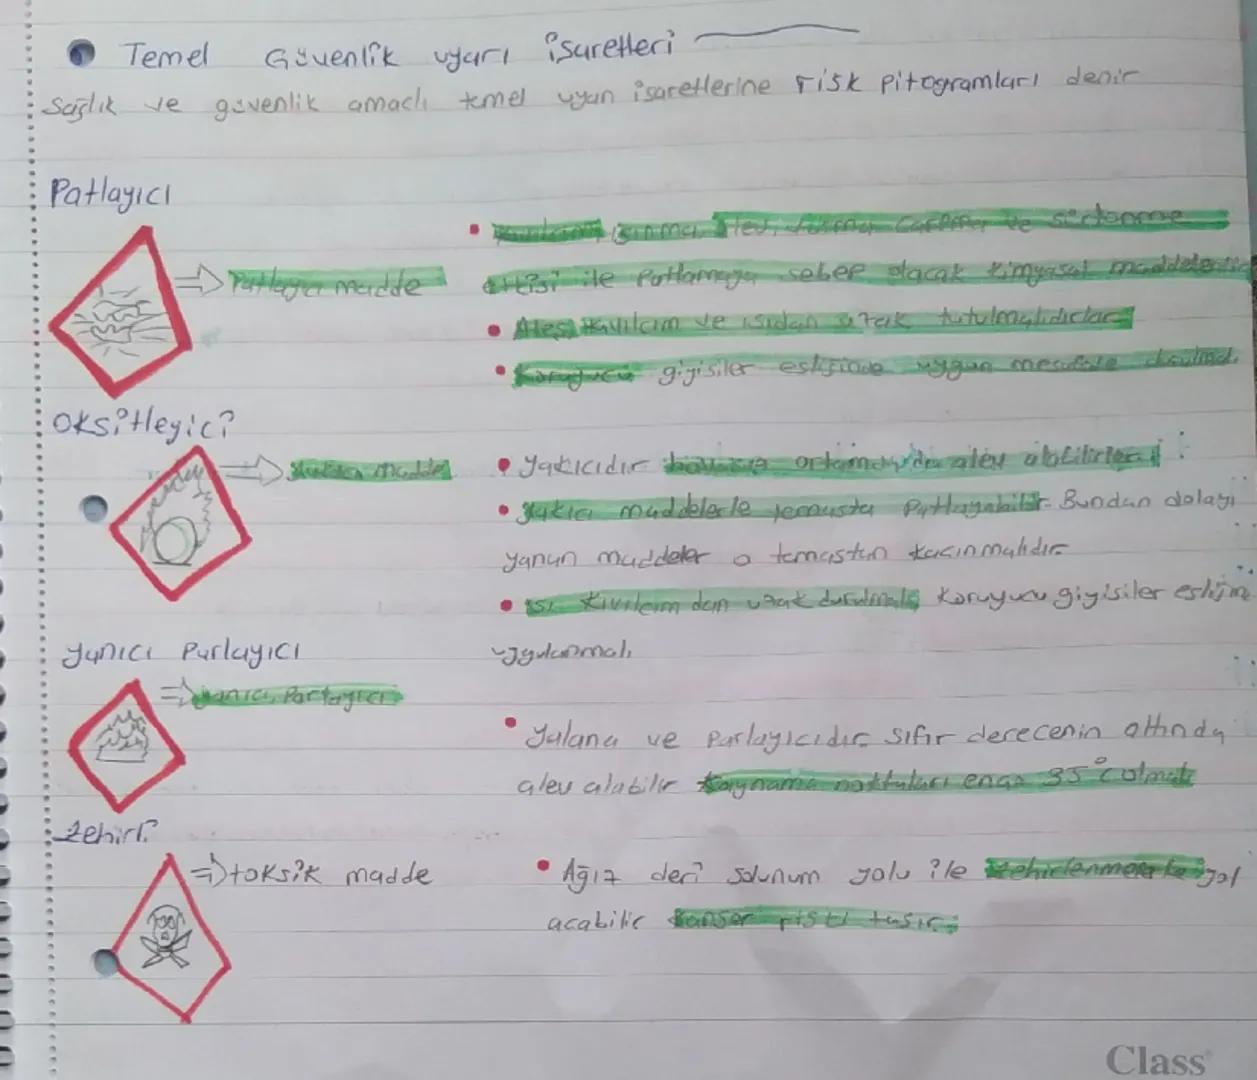 Temel Güvenlik uyarı işaretleri
Sağlık ve güvenlik amaclı temel uyarı işaretlerine risk pitogramları denir
Patlayıcı
ısınma, Alev, Çarpma ve sürtünme
⇒ Patlayıcı madde
etkisi ile Patlamaya sebep olacak kimyasal maddeler
• Ateş, kıvılcım ve ısıdan uzak tutulmalıdırlar
• Koruyucu giyisiler eşliğinde uygun mesafede
Oksitleyici
⇒ Yakıcı madde
• Yakıcıdır havasız ortamda da alev alabilirler
• Yakıcı maddelerle temasta Patlayabilir. Bundan dolayı
yanan maddeler o temastan kacınmalıdır
• Isı kıvılcımdan uzak durulmalı, Koruyucu giyisiler
uygulanmalı
Yanıcı Parlayıcı
⇒ yanıcı, Parlayıcı
• ve Parlayıcıdır sıfır derecenin altında
alev alabilir kaynama noktaları enaz 35°C olmalı
Zehirli
⇒ toksik madde
• Ağız deri solunum yolu ile zehirlenmelere yol
acabilir kanser riski taşır.
Class